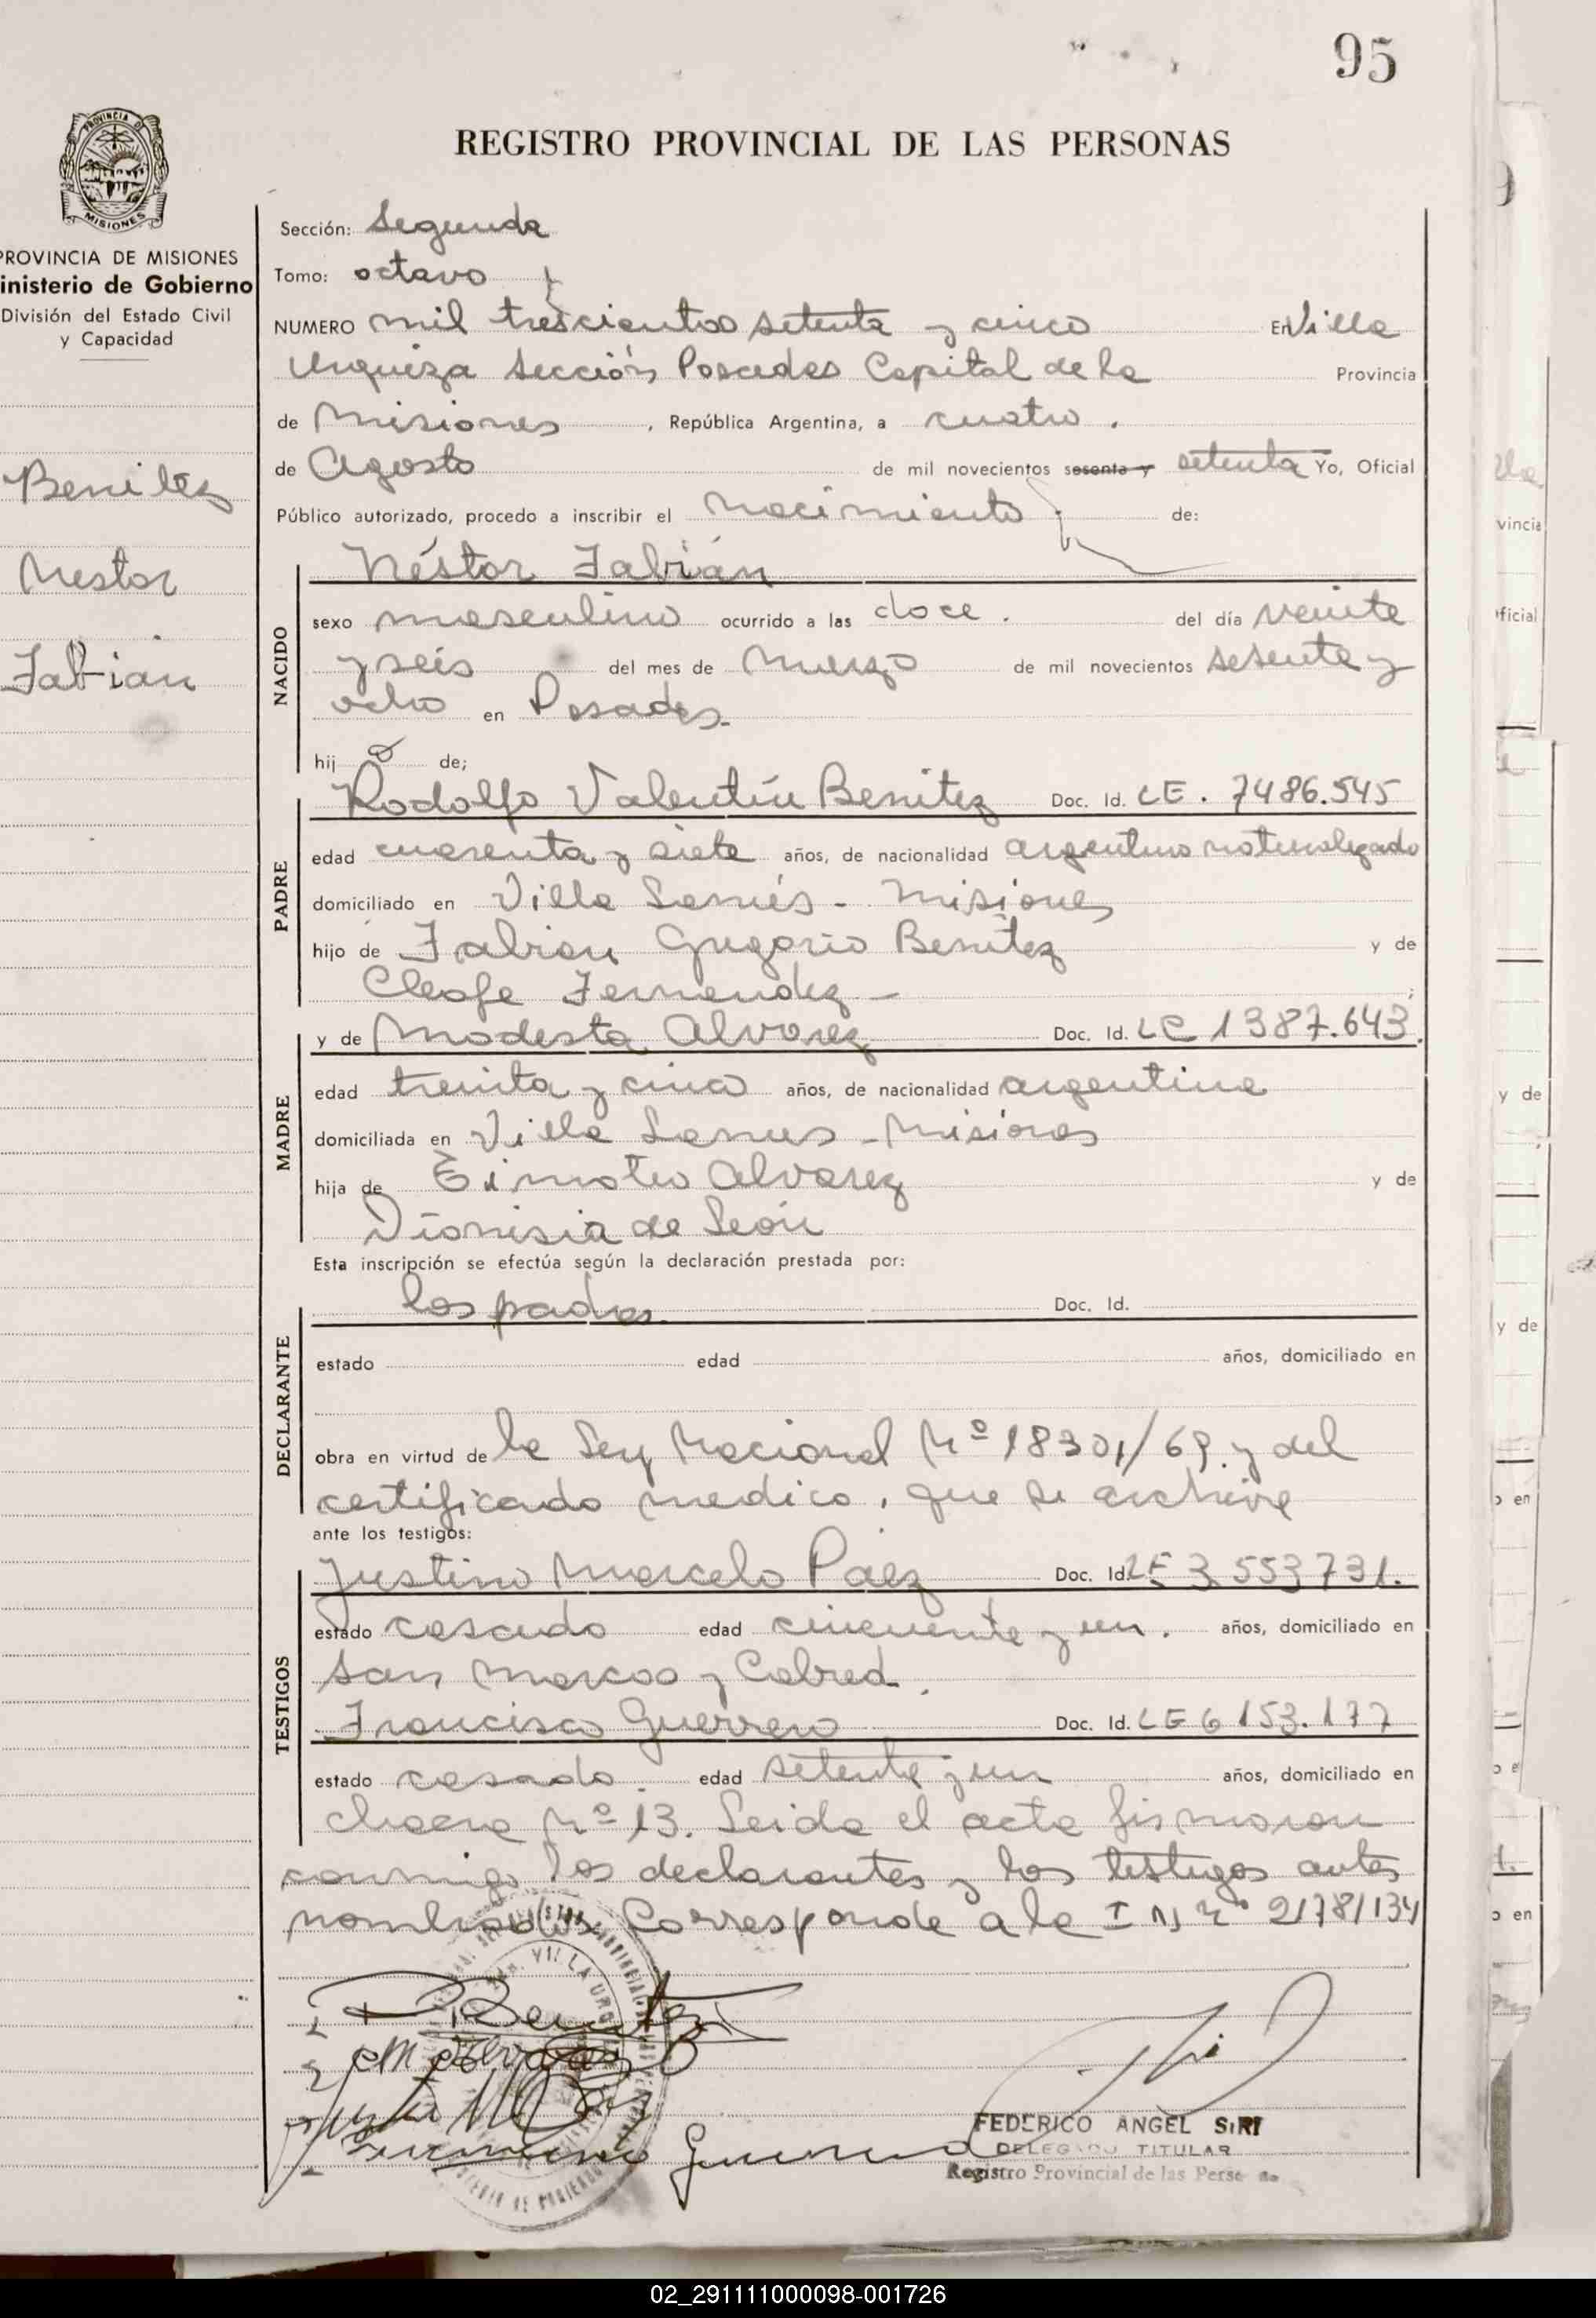 95
REGISTRO PROVINCIAL DE LAS PERSONAS
PROVINCIA DE
MISIONES
PROVINCIA DE MISIONES
inisterio de Gobierno
División del Estado Civil
y Capacidad
Benitez
Nestor
Fabian
Sección: Segunda
Tomo: octavo
NUMERO mil trescientos setenta y cinco En Villa
Urquiza Sección Posadas Capital de la Provincia
de Misiones, República Argentina, a cuatro.
de Agosto de mil novecientos sesenta y setenta Yo, Oficial
Público autorizado, procedo a inscribir el nacimiento de:
Néstor Fabián
NACIDO
sexo masculino ocurrido a las doce. del día veinte
y seis del mes de marzo de mil novecientos sesenta y
ocho en Posadas.
hijo de;
Rodolfo Valentín Benitez Doc. Id. LE. 7486.545
PADRE
edad cuarenta y siete años, de nacionalidad argentino naturalizado
domiciliado en Villa Lanús - Misiones
hijo de Fabian Gregorio Benitez y de
Cleofe Fernandez -
y de Modesta Alvarez Doc. Id. LC 1387.643.
MADRE
edad treinta y cinco años, de nacionalidad argentina
domiciliada en Villa Lanus - Misiones
hija de Timoteo Alvarez y de
Dionisia de León
Esta inscripción se efectúa según la declaración prestada por:
los padres Doc. Id.
DECLARANTE
estado edad años, domiciliado en
obra en virtud de la Ley Nacional Nº 18301/69. y del
certificado medico, que se archiva
ante los testigos:
Justino Marcelo Paez Doc. Id. LE 3.553731.
TESTIGOS
estado casado edad cincuenta y un. años, domiciliado en
San Marcos y Cabred.
Francisco Guerrero Doc. Id. LE 6153.177
estado casado. edad setenta y un años, domiciliado en
chacra Nº 13. Leida el acta firmaron
conmigo los declarantes y los testigos antes
nombrados. Corresponde a la I N Nº 2178/134
R Benitez
M Alvarez B
Francisco Guerrero
FEDERICO ANGEL SIRI
DELEGADO TITULAR
Registro Provincial de las Perso
02_291111000098-001726